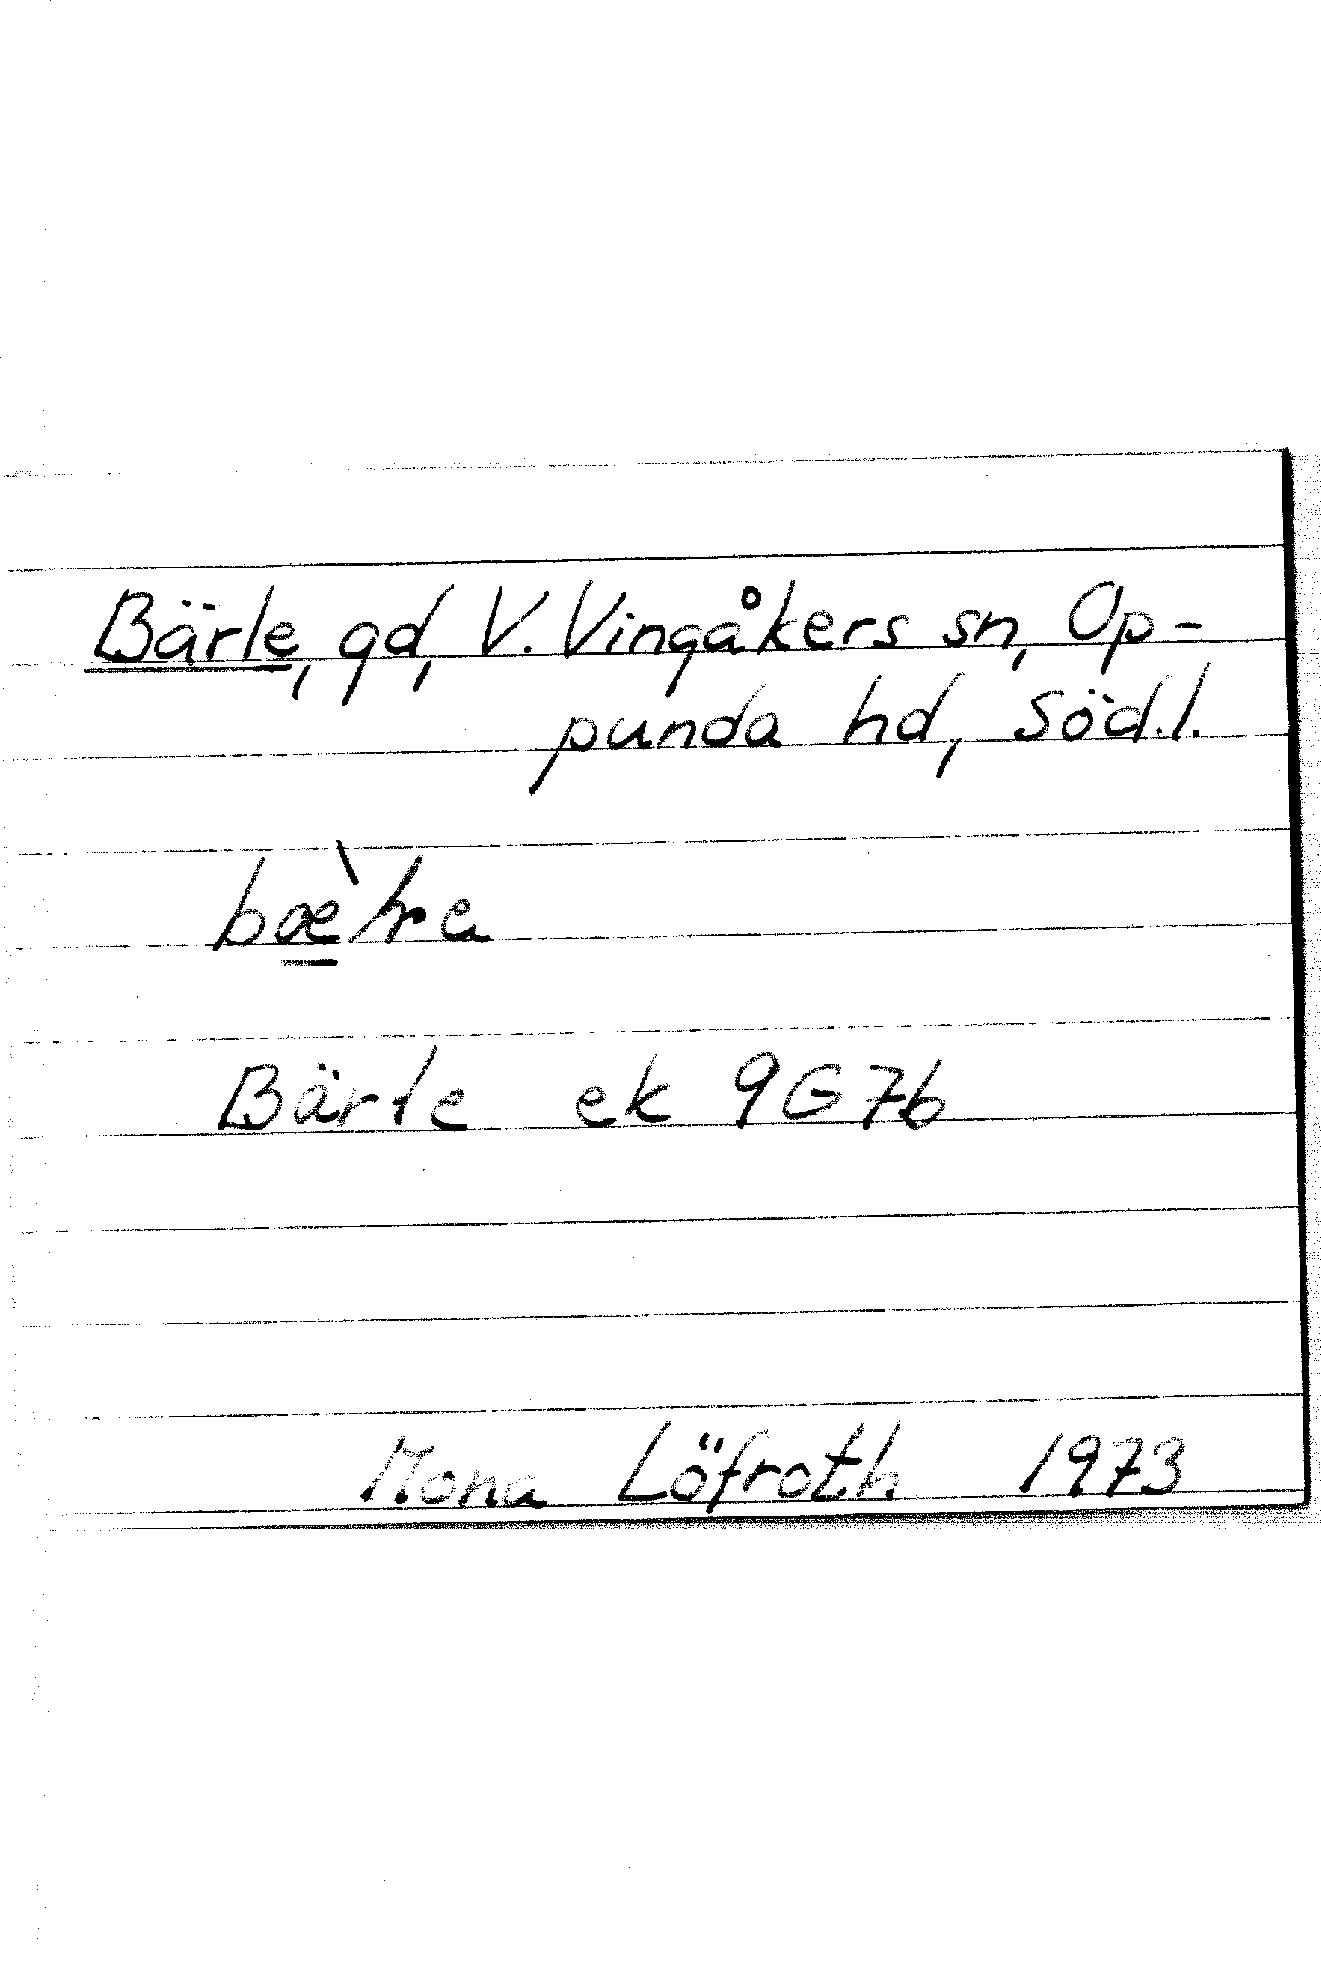 Bärle, gd, V. Vingåkers sn, Op-
punda hd, Söd.l.
Bärle ek 9G7b
Mona Löfroth 1973